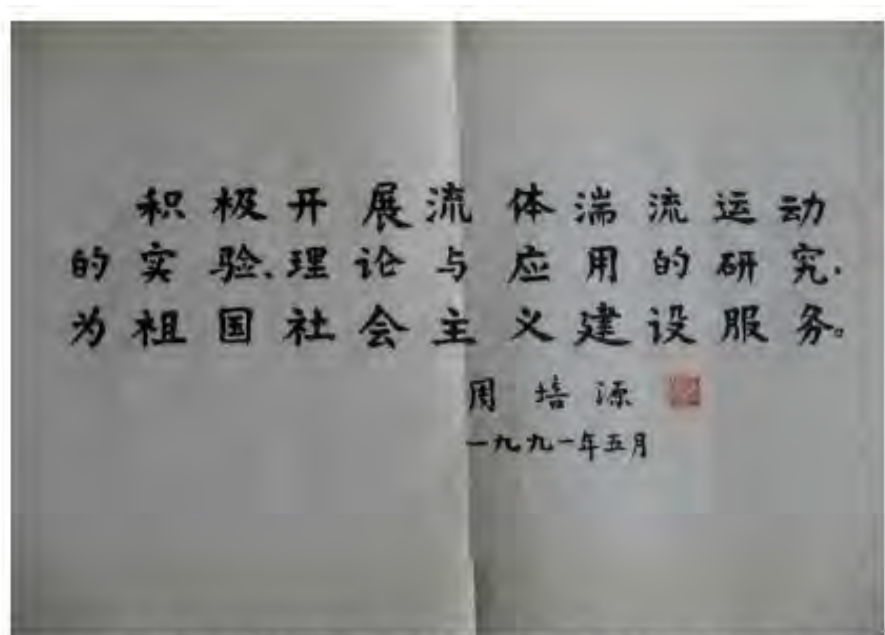 积极开展流体湍流运动
的实验、理论与应用的研究,
为祖国社会主义建设服务。
周培源
一九九一年五月